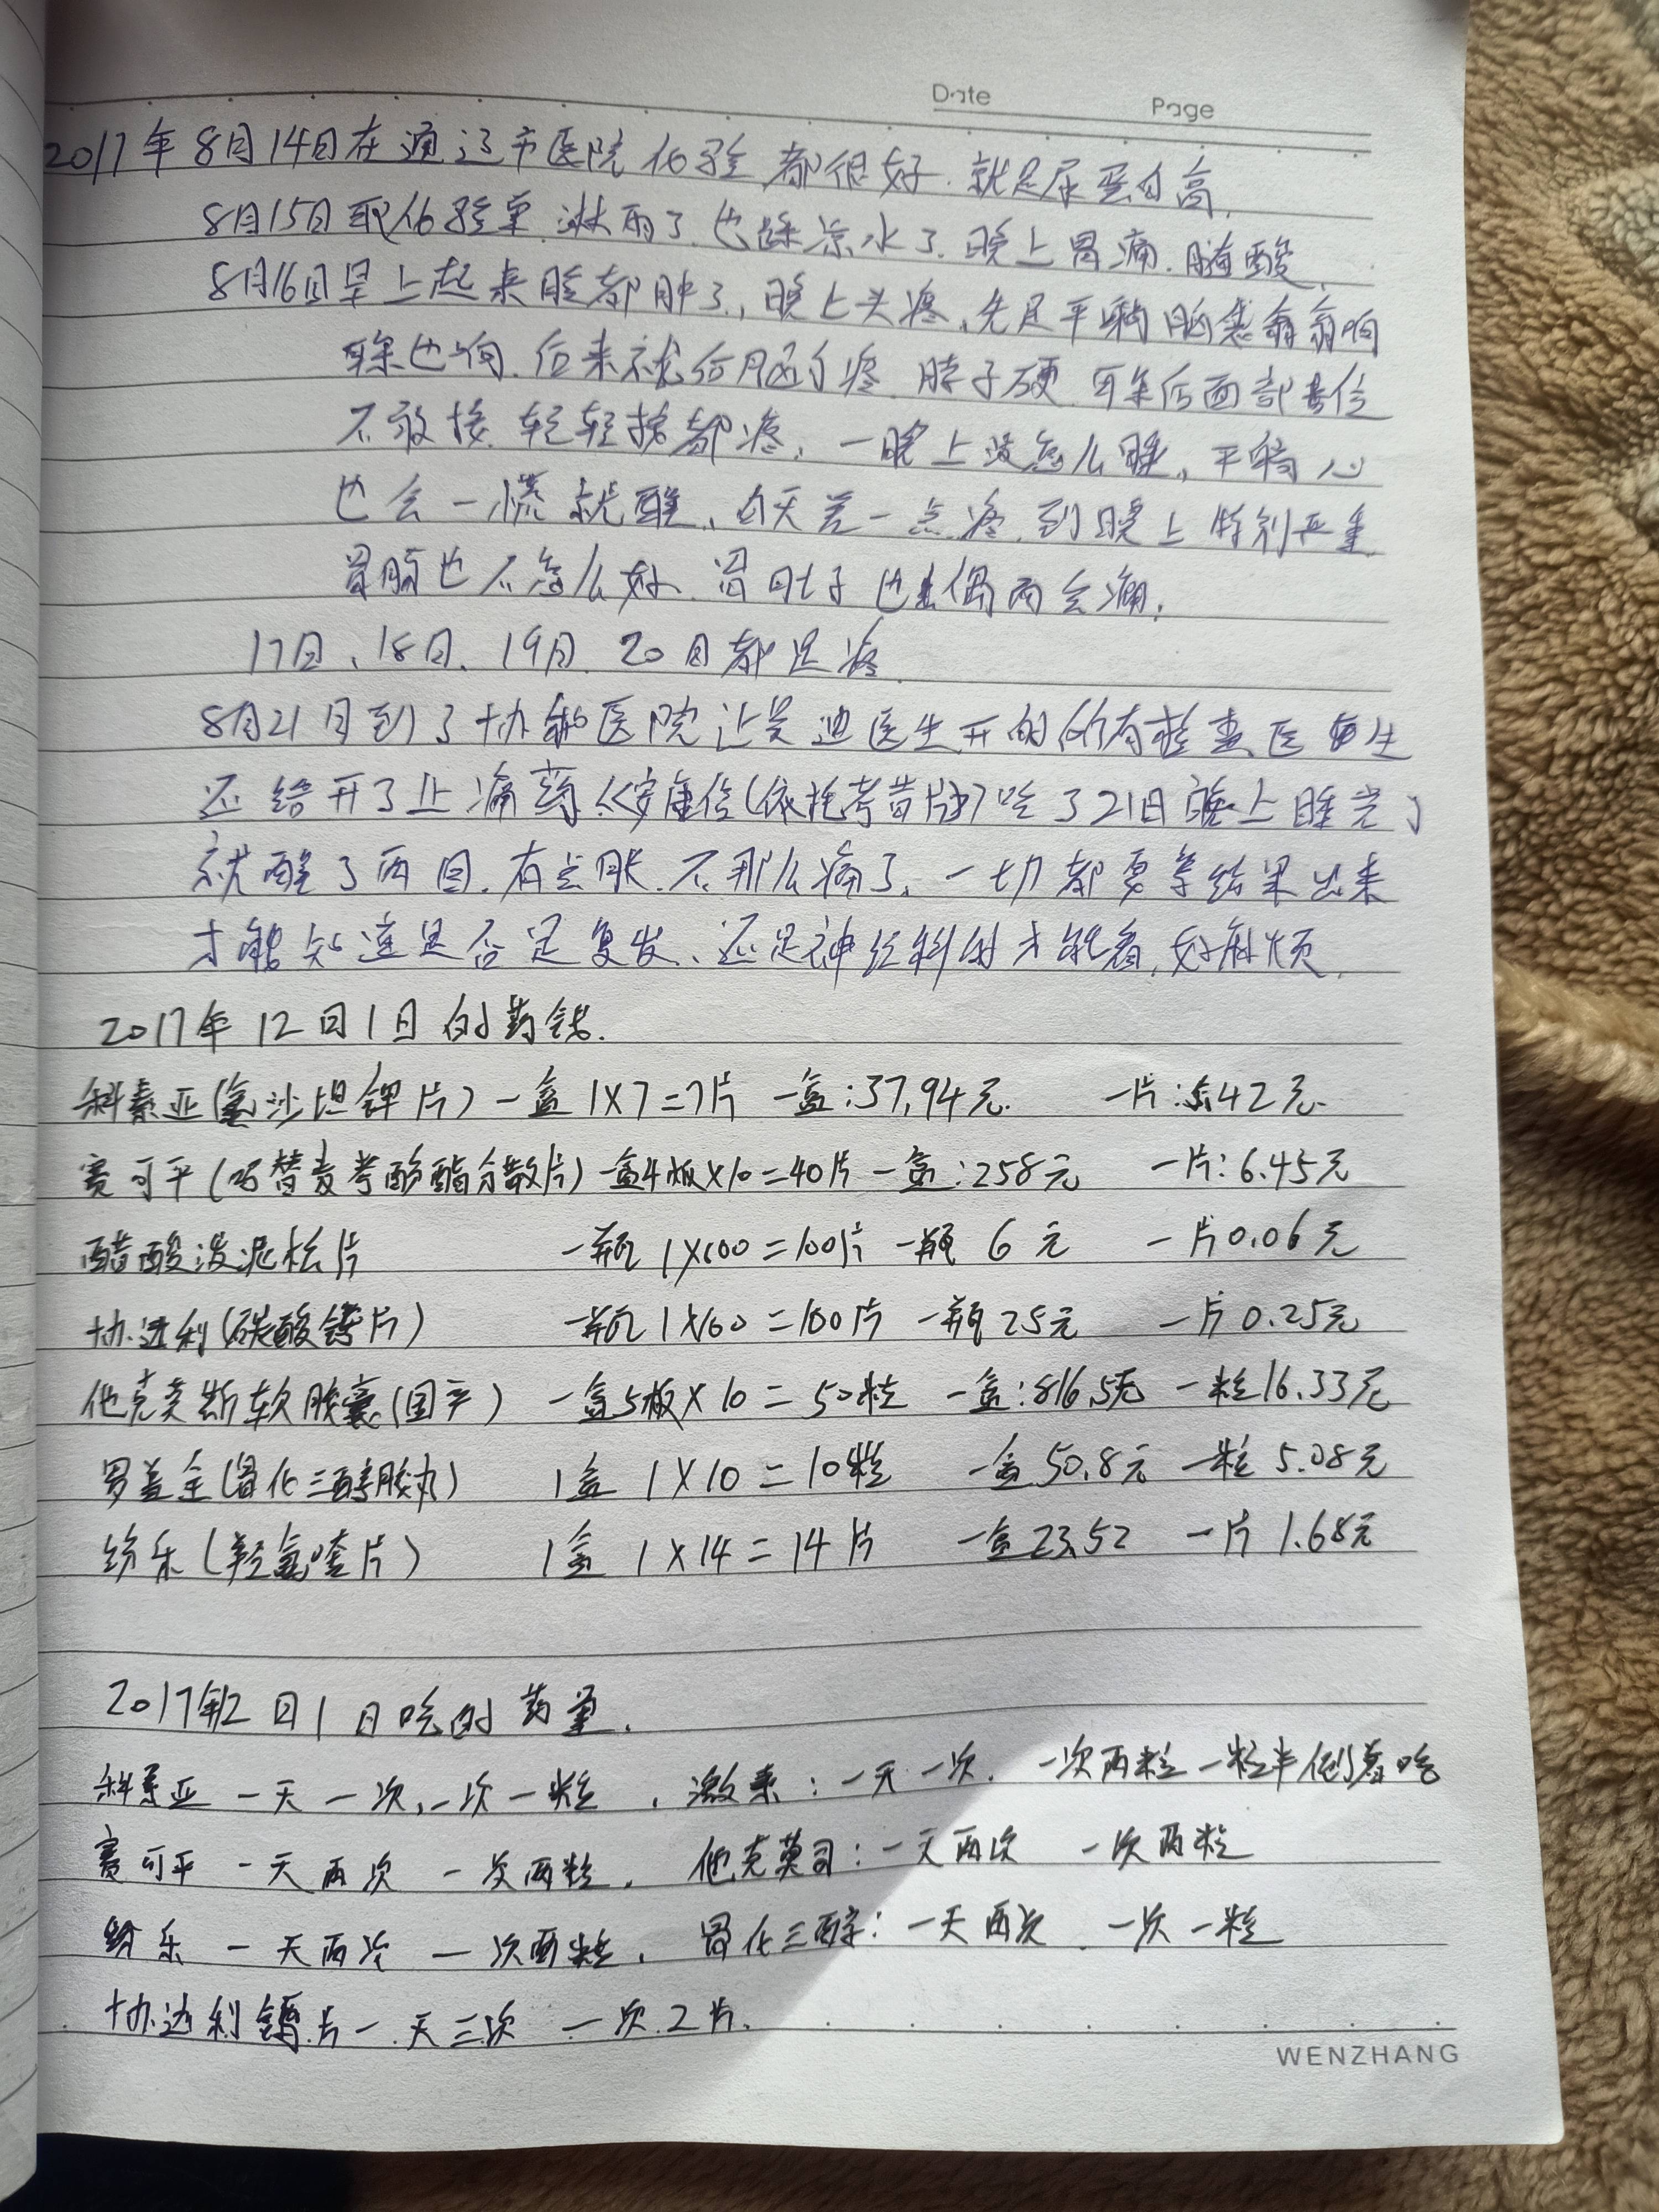 Date Page
2017年8月14日在通辽市医院化验都很好.就是尿蛋白高,
8月15日取化验单.淋雨了.也踩凉水了.晚上胃痛.腰酸,
8月16日早上起来脸都肿了,晚上头疼,先是平躺脑袋翁翁响
耳朵也响.后来就后脑勺疼 脖子硬 耳朵后面部位
不敢按 轻轻按都疼,一晚上没怎么睡,平躺心
也会一慌就醒,白天差一点疼.到晚上特别严重
胃肠也不怎么好.胃肚子也偶而会痛,
17日、18日、19日、20日都是疼
8月21日到了协和医院让吴迪医生开的所有检查医生
还给开了止痛药《安康信(依托考昔片)吃了21日晚上睡觉
就醒了两回.有点胀.不那么痛了.一切都要等结果出来
才能知道是否是复发、还是神经科的才能看,好麻烦.
2017年12日1日的药钱.
科素亚(氯沙坦钾片)一盒1X7=7片 一盒:37.94元. 一片:5.42元
赛可平(吗替麦考酚酯分散片)一盒4板X10=40片 一盒:258元 一片:6.45元
醋酸泼泥松片 一瓶1X100=100片 一瓶6元 一片0.06元
协达利(碳酸钙片) 一瓶1X100=100片 一瓶25元 一片0.25元
他克莫斯软胶囊(国产) 一盒5板X10=50粒 一盒:816.5元 一粒16.33元
罗盖全(骨化三醇胶丸) 1盒 1X10=10粒 一盒50.8元 一粒5.08元
纷乐(羟氯喹片) 1盒 1X14=14片 一盒23.52 一片1.68元
2017年12日1日吃的药量.
科素亚 一天一次,一次一粒, 激素:一天一次. 一次两粒一粒半倒着吃
赛可平 一天两次 一次两粒, 他克莫司:一天两次 一次两粒
纷乐 一天两次 一次两粒, 骨化三醇:一天两次 一次一粒
协达利钙片一天三次 一次2片.
WENZHANG